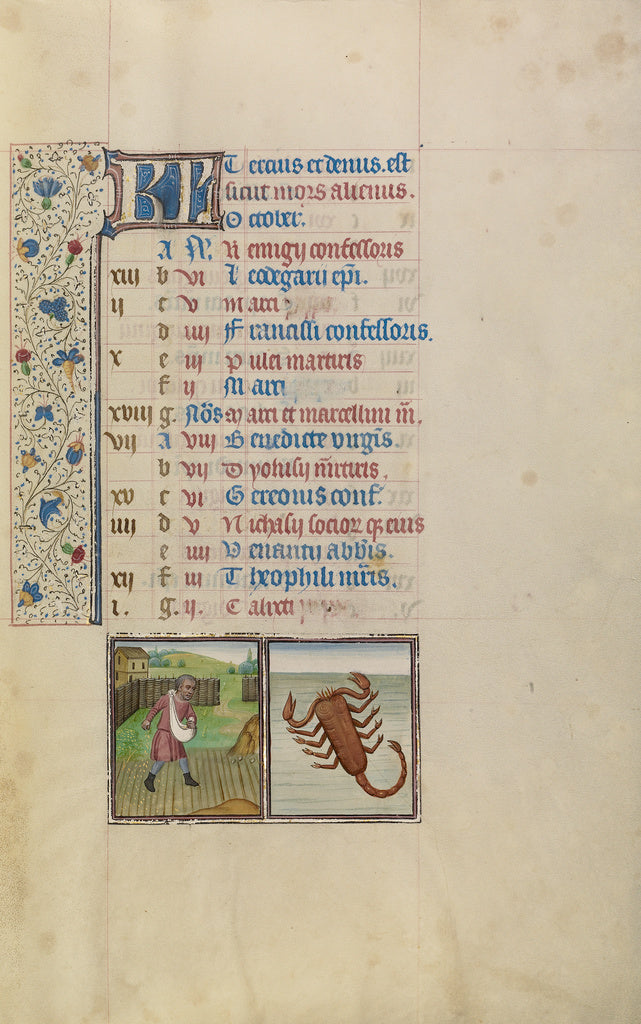 KL Tercius et denus. est
sicut mors alienus.
October.
A N. Remigii confessoris
xiii b vi Leodegarii epi.
ii c v Marci
d iiii Francissi confessoris.
x e iii Pulci martiris
f ii Marci
xviii g. Nōs Marci et marcellini m̄.
vii A viii Benedicte virgīs.
b vii Dyonisii m̄rtiris.
xv c vi Gereonis conf.
iiii d v Nichasii socior qz eius
e iiii Venantii abb̄is.
xii f iii Theophili mr̄is.
i. g. ii. Calixti